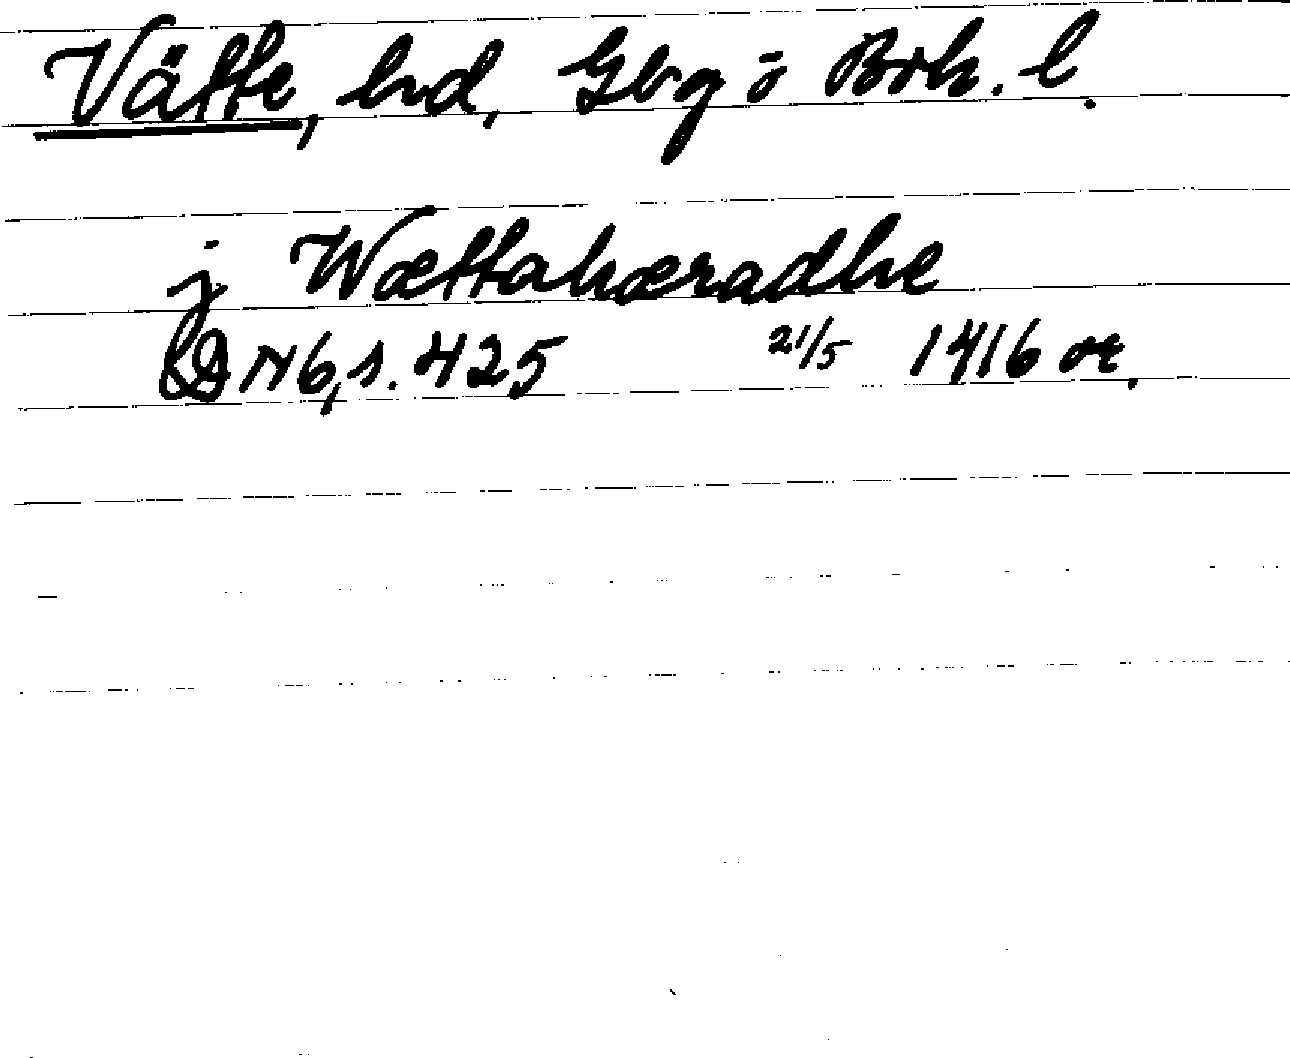 Vätte, hd, Gbg ö Boh. l.
j Wættahæradhe
SD N 6, s. 425 21/5 1416 or.